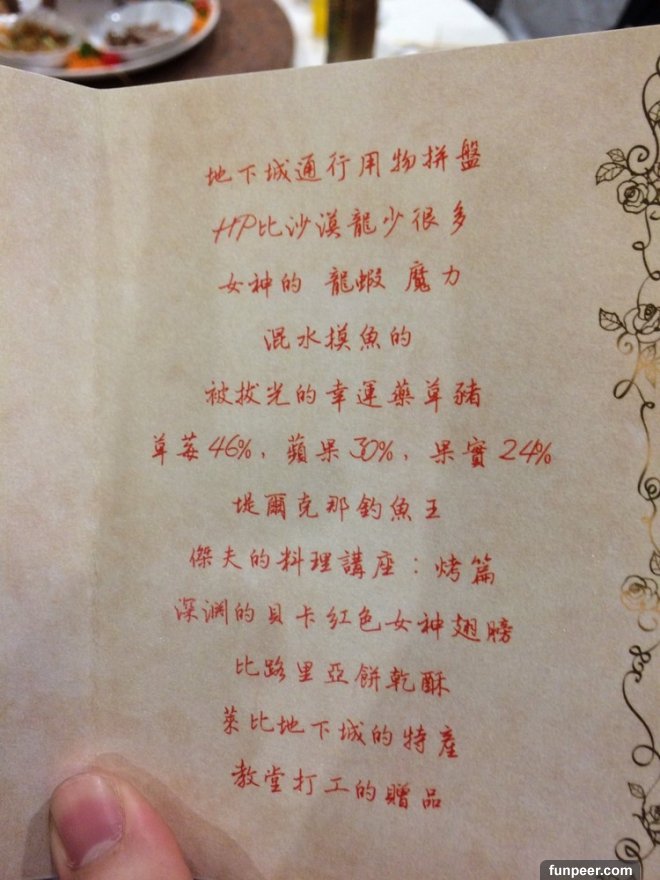 地下城通行用物拼盤
HP比沙漠龍少很多
女神的 龍蝦 魔力
混水摸魚的
被拔光的幸運藥草豬
草莓46%,蘋果30%,果實24%
堤爾克那釣魚王
傑夫的料理講座:烤篇
深淵的貝卡紅色女神翅膀
比路里亞餅乾酥
萊比地下城的特產
教堂打工的贈品
funpeer.com